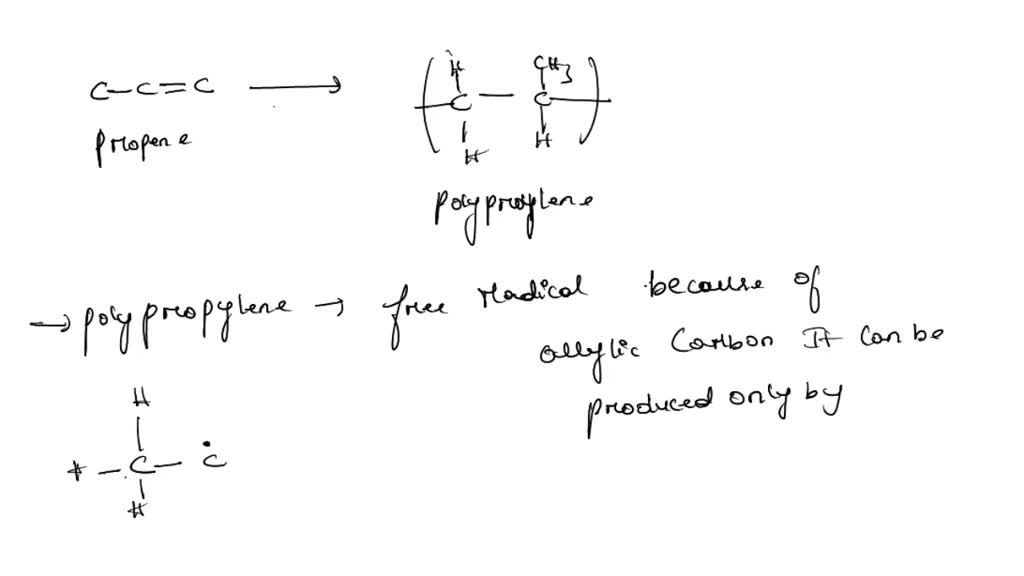 C-C=C ⟶ ( H CH3
-C-C-
H H )
propene
polyproylene
→ polypropylene → free radical because of
allylic Carbon It can be
produced only by
H
* -C- Ċ
H